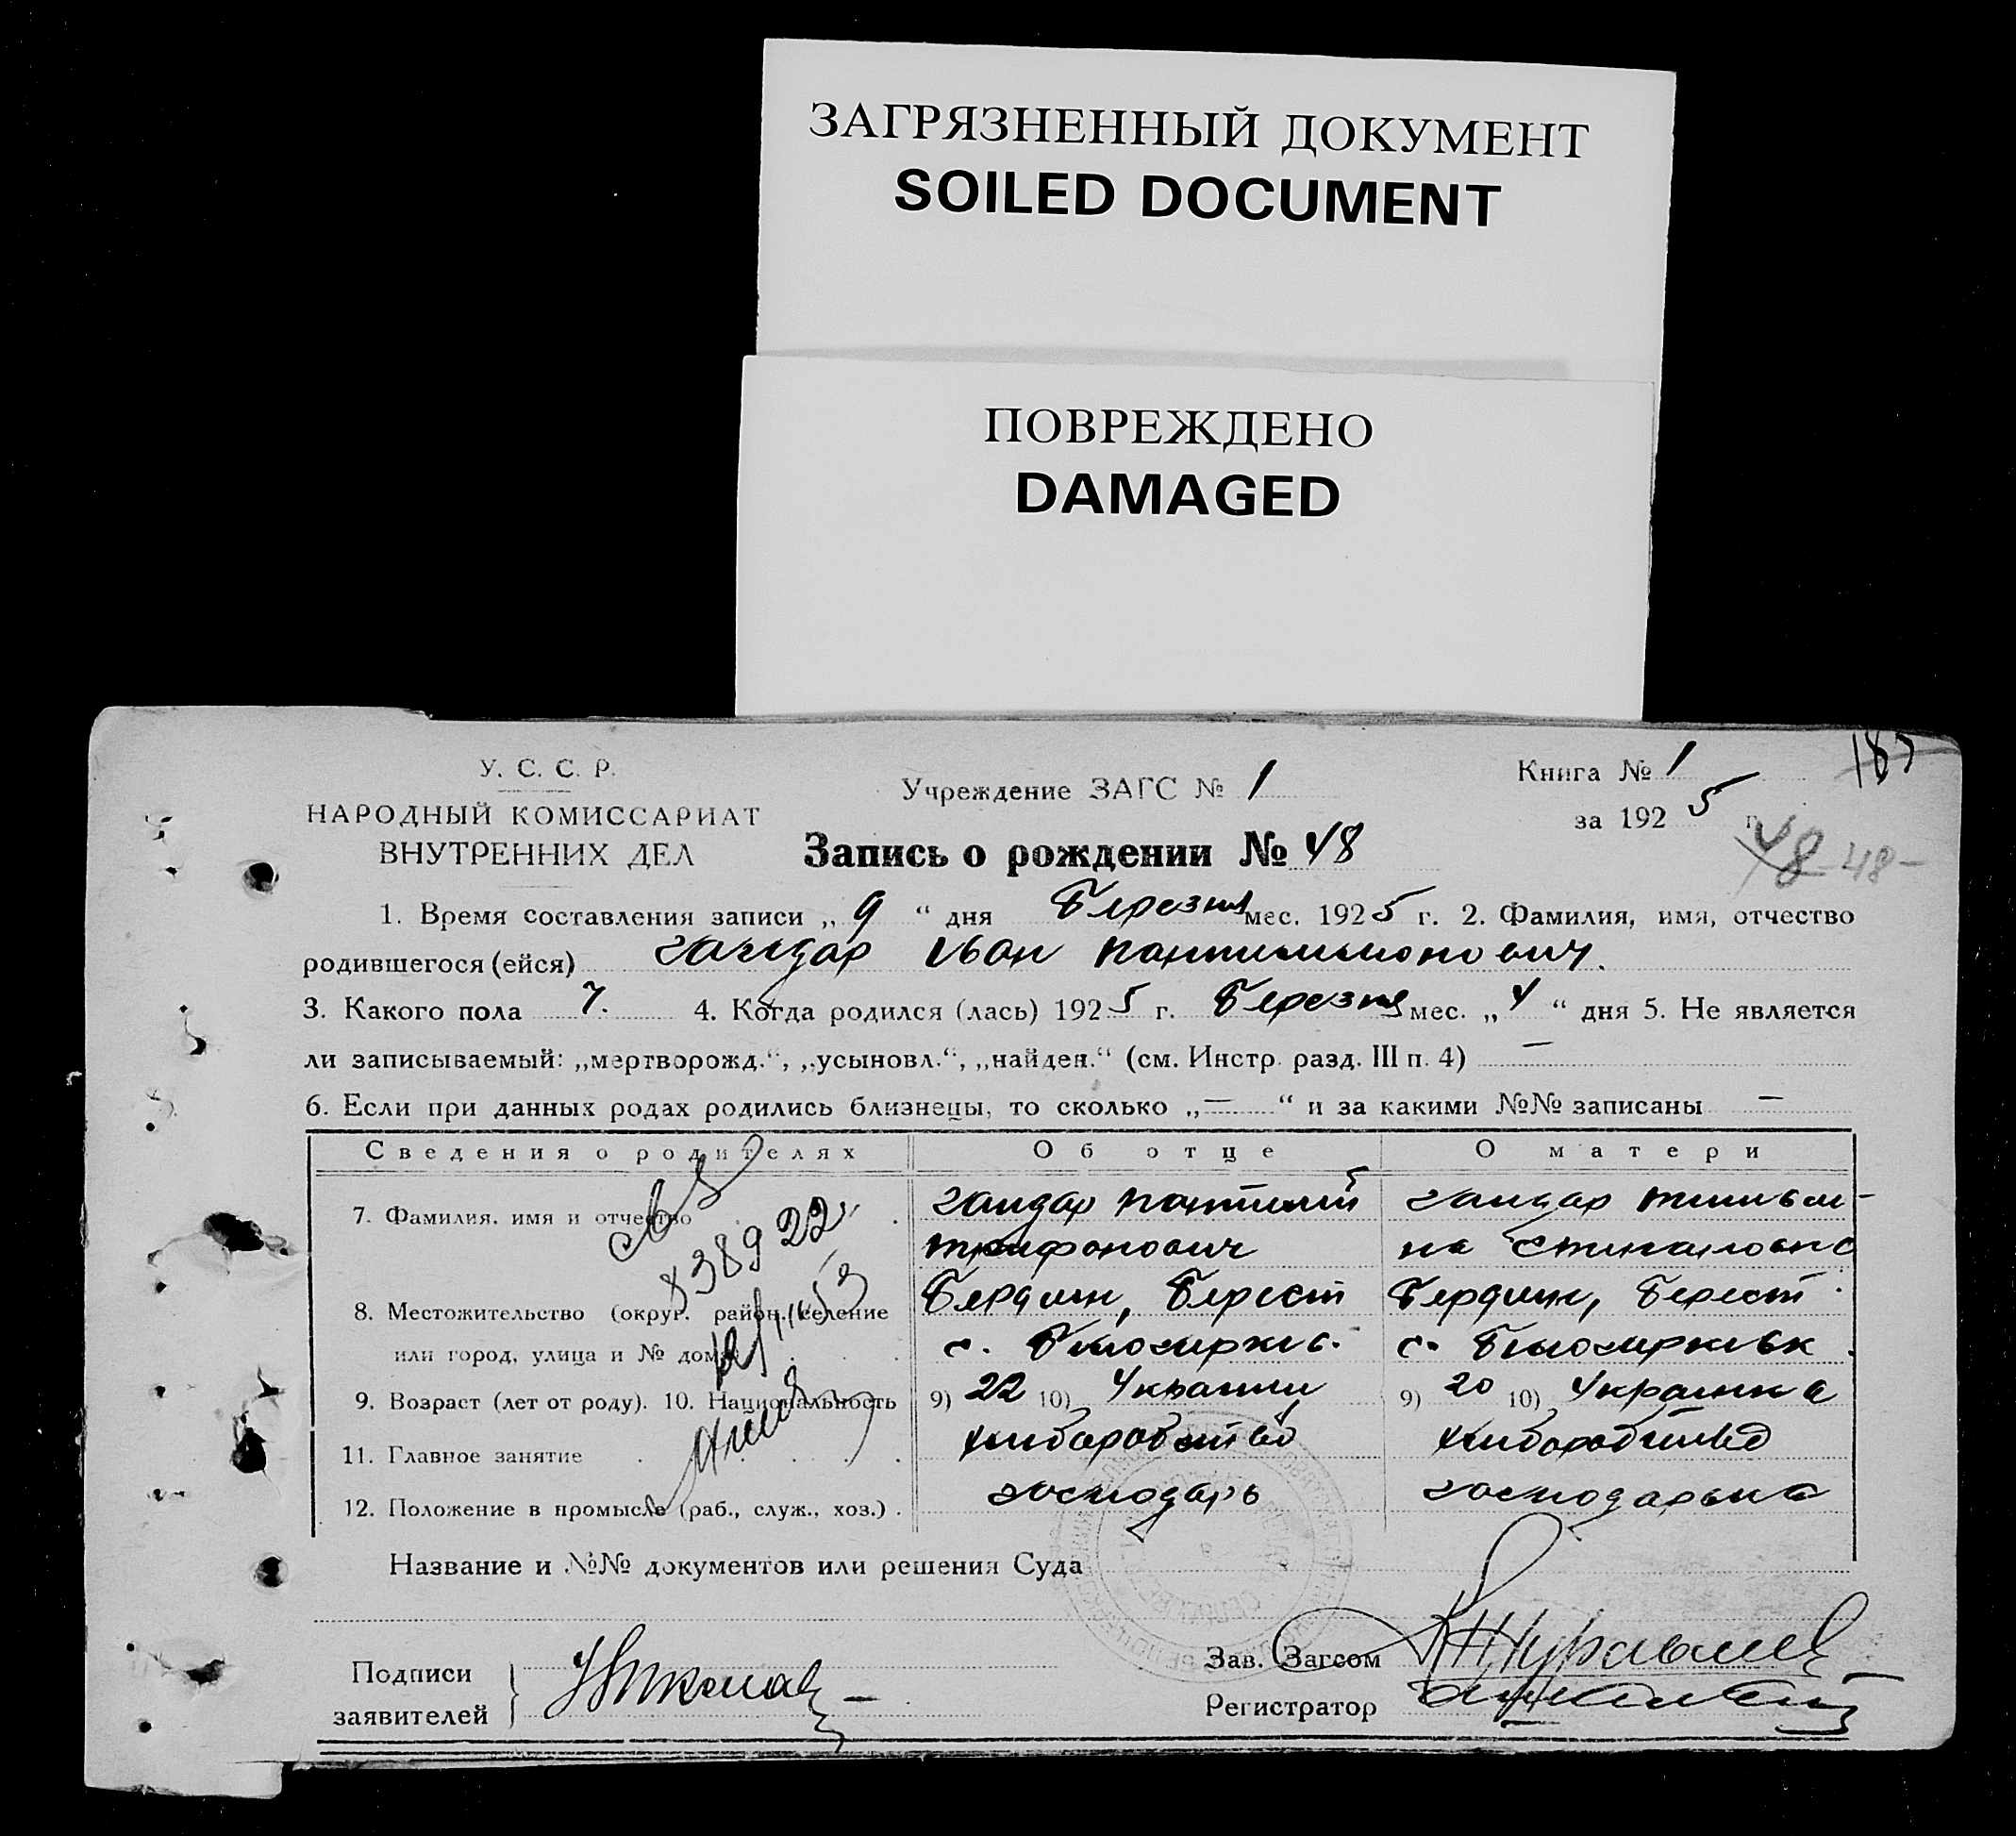 ЗАГРЯЗНЕННЫЙ ДОКУМЕНТ
SOILED DOCUMENT
ПОВРЕЖДЕНО
DAMAGED
У. С. С. Р.
НАРОДНЫЙ КОМИССАРИАТ
ВНУТРЕННИХ ДЕЛ
Учреждение ЗАГС № 1
Книга № 1
за 1925 г.
185
Запись о рождении № 48
48 - 48 -
1. Время составления записи „ 9 “ дня Березня мес. 1925 г. 2. Фамилия, имя, отчество
родившегося (ейся) Іван
3. Какого пола Ч. 4. Когда родился (лась) 1925 г. Березня мес. „ 4 “ дня 5. Не является
ли записываемый: „мертворожд.“, „усыновл.“, „найден.“ (см. Инстр. разд. III п. 4) —
6. Если при данных родах родились близнецы, то сколько „—“ и за какими №№ записаны —
Сведения о родителях Об отце О матери
7. Фамилия, имя и отчество Гайдар Гайдар
Трифонович на
8. Местожительство (округ. район. селение Бердян, Берест Бердян, Берест
или город, улица и № дома) с. с.
9. Возраст (лет от роду). 10. Национальность 9) 22 10) Украинц 9) 20 10) Украинка
11. Главное занятие хлиборобство хлиборобство
12. Положение в промысле (раб., служ., хоз.) господарь господарька
38922
Название и №№ документов или решения Суда
Подписи
заявителей
Зав. Загсом
Регистратор